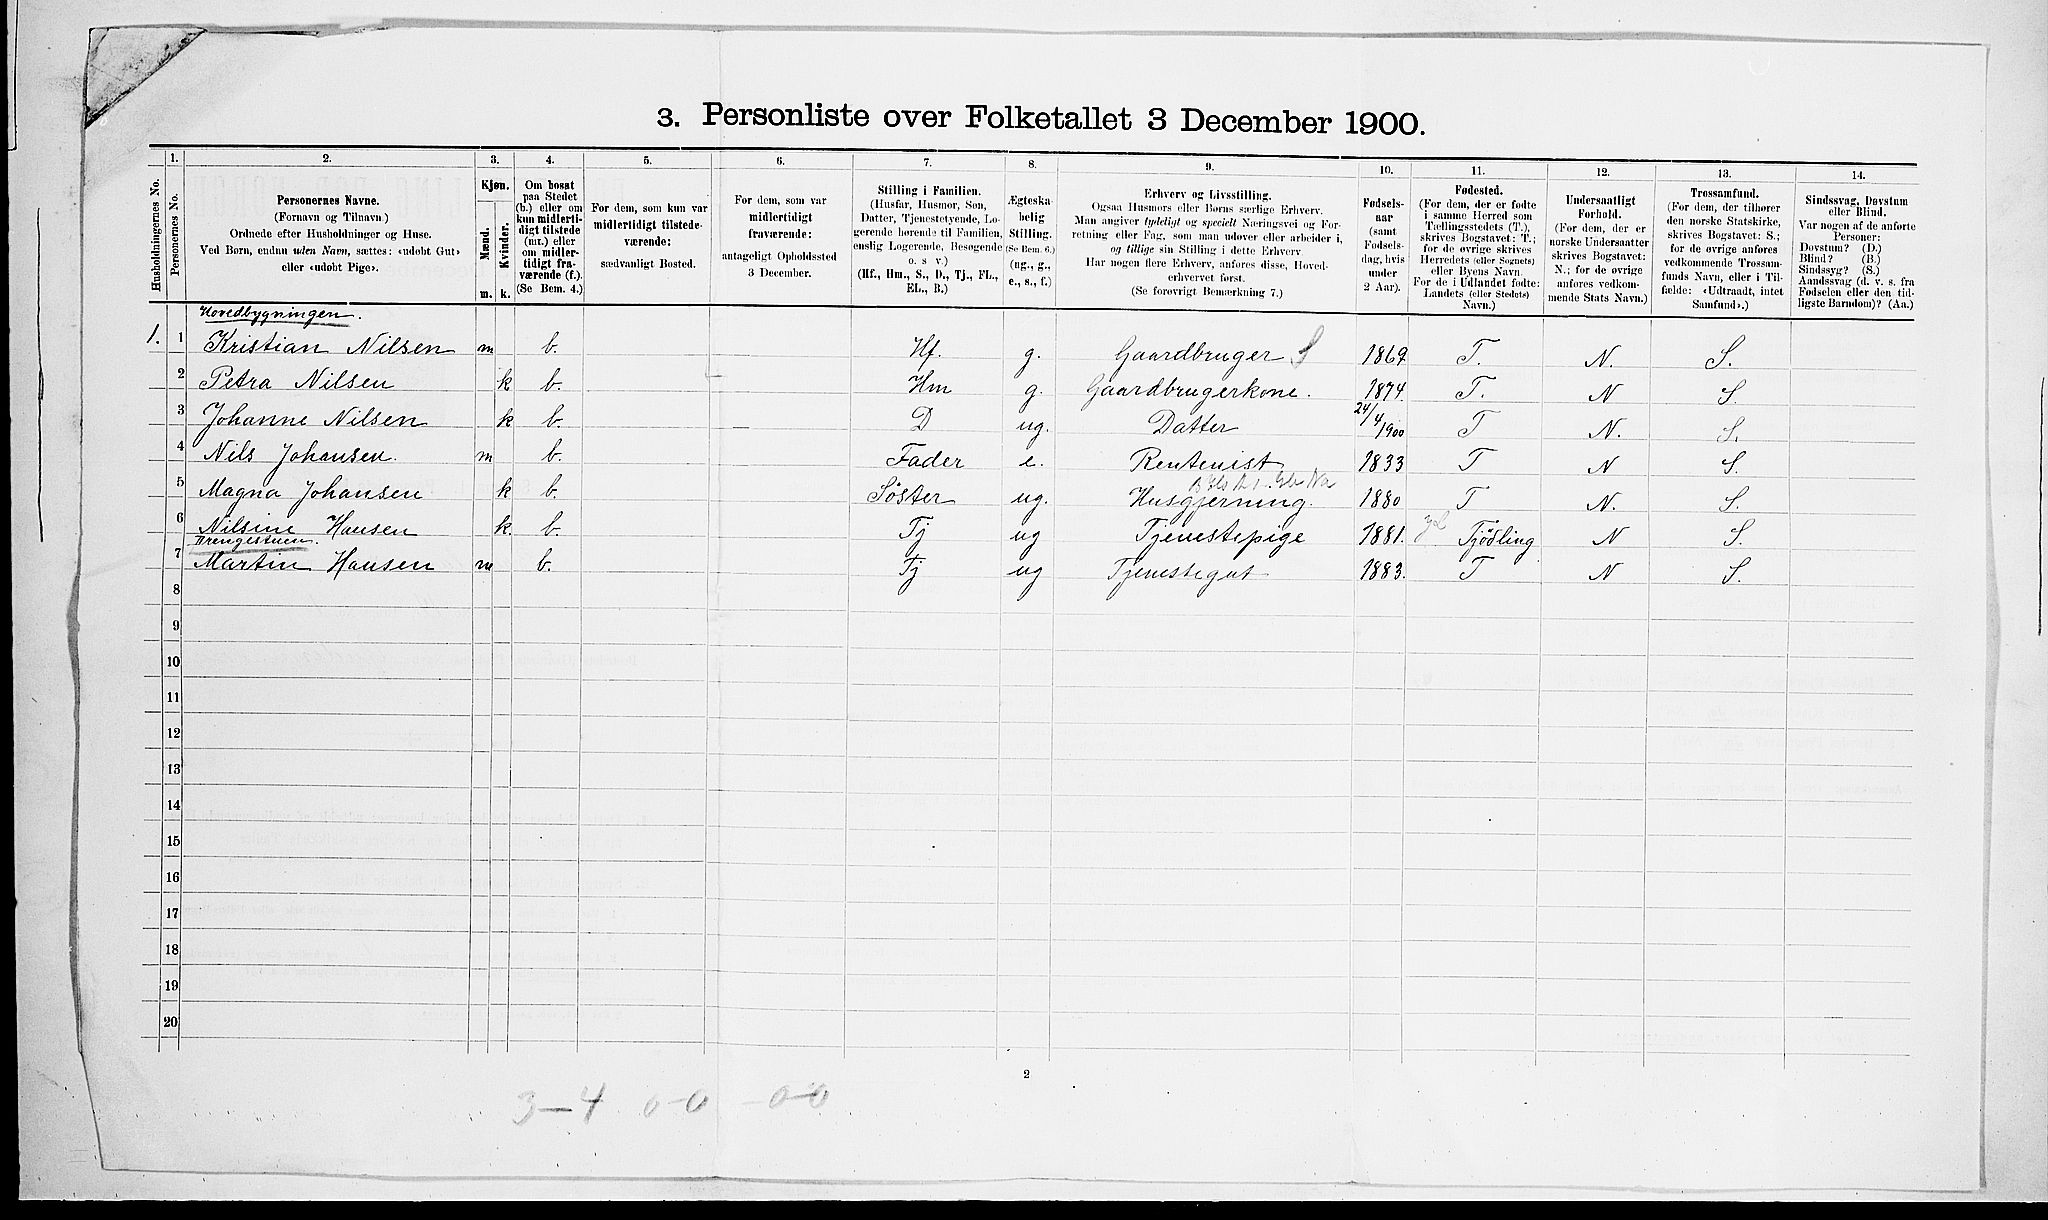 3. Personliste over Folketallet 3 December 1900.
Husholdningernes No.
1. Personernes No.
2. Personernes Navne. (Fornavn og Tilnavn.) Ordnede efter Husholdninger og Huse. Ved Børn, endnu uden Navn, sættes: «udøbt Gut» eller «udøbt Pige».
3. Kjøn. Mænd. Kvinder. m. k.
4. Om bosat paa Stedet (b.) eller om kun midlertidigt tilstede (mt.) eller om midlertidigt fraværende (f.). (Se Bem. 4.)
5. For dem, som kun var midlertidigt tilstedeværende: sædvanligt Bosted.
6. For dem, som var midlertidigt fraværende: antageligt Opholdssted 3 December.
7. Stilling i Familien. (Husfar, Husmor, Søn, Datter, Tjenestetyende, Logerende hørende til Familien, enslig Logerende, Besøgende o. s v.) (Hf., Hm., S., D., Tj., FL., EL., B.)
8. Ægteskabelig Stilling. (Se Bem. 6.) (ug., g., e., s., f.)
9. Erhverv og Livsstilling. Ogsaa Husmors eller Børns særlige Erhverv. Man angiver tydeligt og specielt Næringsvei og Forretning eller Fag, som man udøver eller arbeider i, og tillige sin Stilling i dette Erhverv. Har nogen flere Erhverv, anføres disse, Hovederhvervet først. (Se forøvrigt Bemærkning 7.)
10. Fødselsaar (samt Fødselsdag, hvis under 2 Aar).
11. Fødested. (For dem, der er fødte i samme Herred som Tællingsstedets (T.), skrives Bogstavet: T.; for de øvrige skrives Herredets (eller Sognets) eller Byens Navn. For de i Udlandet fødte: Landets (eller Stedets) Navn.)
12. Undersaatligt Forhold. (For dem, der er norske Undersaatter skrives Bogstavet: N.; for de øvrige anføres vedkommende Stats Navn.)
13. Trossamfund. (For dem, der tilhører den norske Statskirke, skrives Bogstavet: S.; for de øvrige anføres vedkommende Trossamfunds Navn, eller i Tilfælde: «Udtraadt, intet Samfund».)
14. Sindssvag, Døvstum eller Blind. Var nogen af de anførte Personer: Døvstum? (D.) Blind? (B.) Sindssyg? (S.) Aandssvag (d. v. s. fra Fødselen eller den tidligste Barndom)? (Aa.)
Hovedbygningen.
1. 1 Kristian Nilsen m b. Hf. g. Gaardbruger S 1869 T. N. S.
2 Petra Nilsen k b. Hm g. Gaardbrugerkone. 1874. T. N S.
3 Johanne Nilsen k b. D ug. Datter 24/4/1900 T N. S.
4 Nils Johansen. m b. Fader e. Rentenist 1833 T N S.
5 Magna Johansen k b. Søster ug. Husgjerning. 1880 T N. S.
6 Nilsine Hansen k. b. Tj ug Tjenestepige 1881. Tjødling N S.
Drengestuen.
7 Martin Hansen m b. Tj ug Tjenestegut 1883. T N S.
8
9
10
11
12
13
14
15
16
17
18
19
20
2
3-4 0-0 -0-0